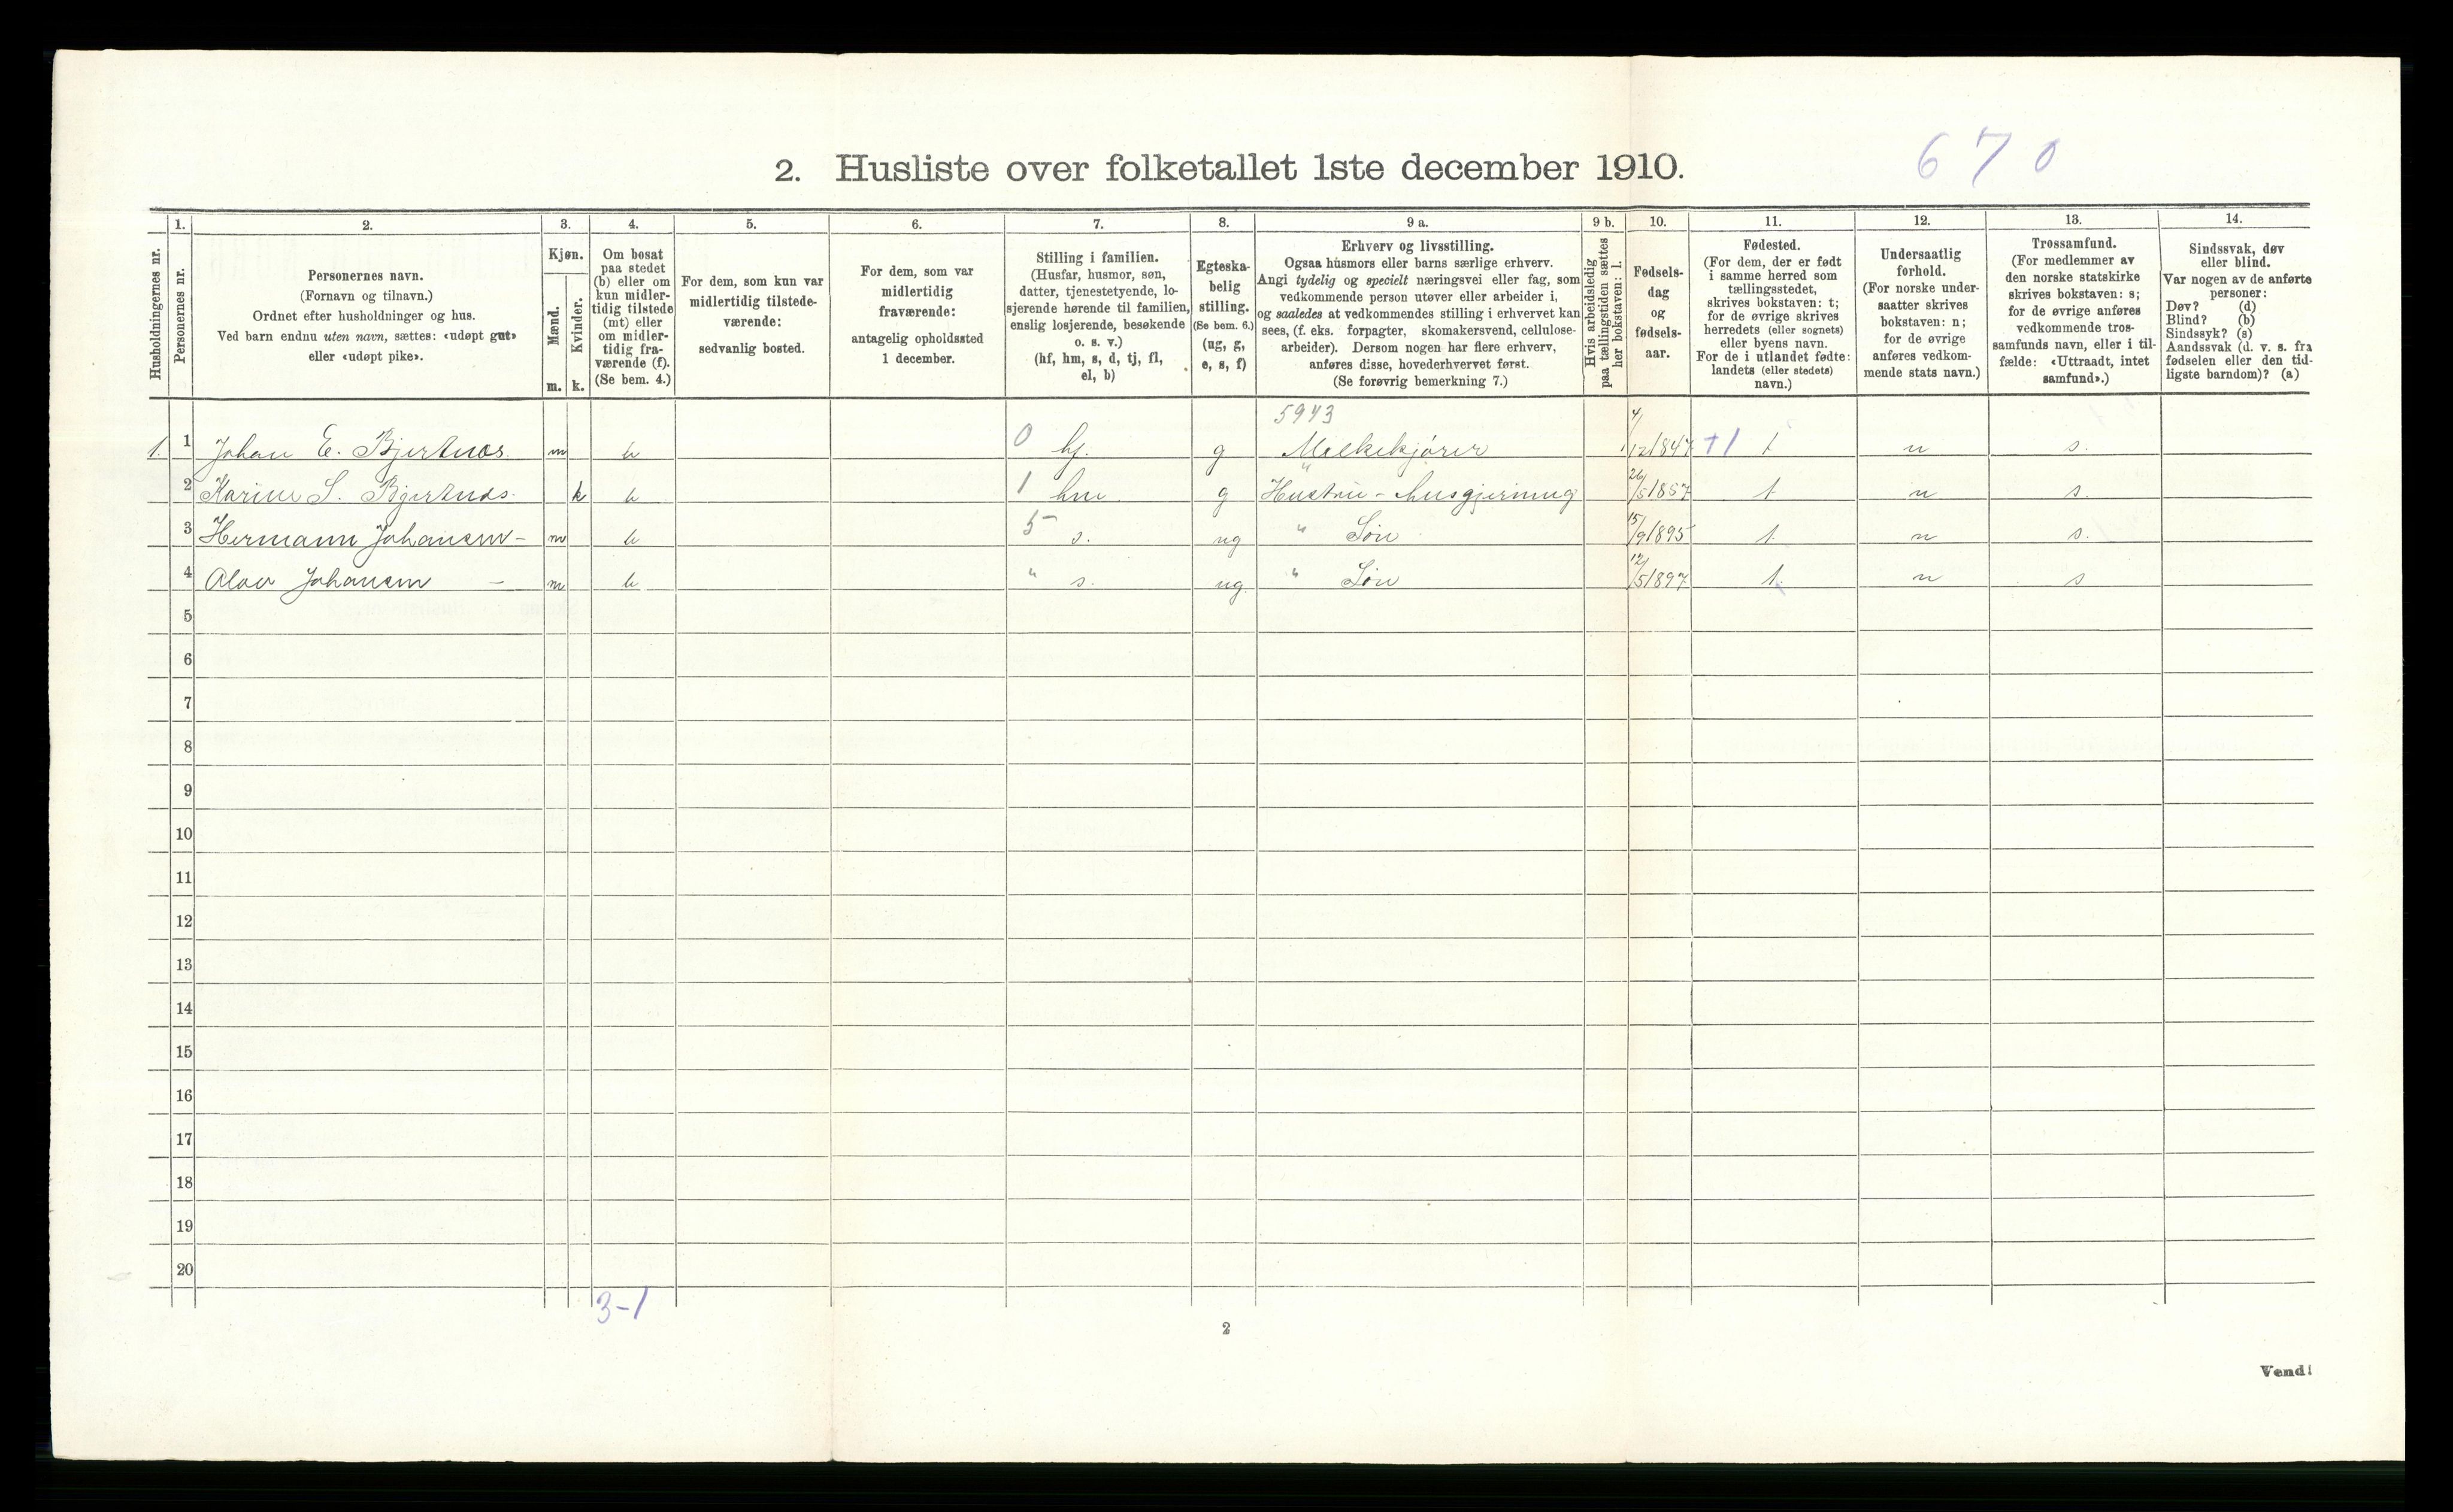 2. Husliste over folketallet 1ste december 1910.
670
Husholdningernes nr.
1.
Personernes nr.
2.
Personernes navn.
(Fornavn og tilnavn.)
Ordnet efter husholdninger og hus.
Ved barn endnu uten navn, sættes: «udøpt gut»
eller «udøpt pike».
3.
Kjøn.
Mænd.
Kvinder.
m. k.
4.
Om bosat
paa stedet
(b) eller om
kun midler-
tidig tilstede
(mt) eller
om midler-
tidig fra-
værende (f).
(Se bem. 4.)
5.
For dem, som kun var
midlertidig tilstede-
værende:
sedvanlig bosted.
6.
For dem, som var
midlertidig
fraværende:
antagelig opholdssted
1 december.
7.
Stilling i familien.
(Husfar, husmor, søn,
datter, tjenestetyende, lo-
sjerende hørende til familien,
enslig losjerende, besøkende
o. s. v.)
(hf, hm, s, d, tj, fl,
el, b)
8.
Egteska-
belig
stilling.
(Se bem. 6.)
(ug, g,
e, s, f)
9 a.
Erhverv og livsstilling.
Ogsaa husmors eller barns særlige erhverv.
Angi tydelig og specielt næringsvei eller fag, som
vedkommende person utøver eller arbeider i,
og saaledes at vedkommendes stilling i erhvervet kan
sees, (f. eks. forpagter, skomakersvend, cellulose-
arbeider). Dersom nogen har flere erhverv,
anføres disse, hovederhvervet først.
(Se forøvrig bemerkning 7.)
9 b.
Hvis arbeidsledig
paa tællingstiden sættes
her bokstaven: l.
10.
Fødsels-
dag
og
fødsels-
aar.
11.
Fødested.
(For dem, der er født
i samme herred som
tællingsstedet,
skrives bokstaven: t;
for de øvrige skrives
herredets (eller sognets)
eller byens navn.
For de i utlandet fødte:
landets (eller stedets)
navn.)
12.
Undersaatlig
forhold.
(For norske under-
saatter skrives
bokstaven: n;
for de øvrige
anføres vedkom-
mende stats navn.)
13.
Trossamfund.
(For medlemmer av
den norske statskirke
skrives bokstaven: s;
for de øvrige anføres
vedkommende tros-
samfunds navn, eller i til-
fælde: «Uttraadt, intet
samfund».)
14.
Sindssvak, døv
eller blind.
Var nogen av de anførte
personer:
Døv? (d)
Blind? (b)
Sindssyk? (s)
Aandssvak (d. v. s. fra
fødselen eller den tid-
ligste barndom)? (a)
5943
1. 1 Johan E. Bjertnæs. m b 0 hf. g Melkekjører 4/12 1847 +1 t n s.
2 Karine S. Bjertnæs. k b 1 hm. g " Hustru - husgjerning 26/5 1857 t n s.
3 Hermann Johansen - m b 5 s. ug " Søn 15/9 1895 t n s.
4 Olav Johansen - m b " s. ug. " Søn 12/5 1897 t. n s
5
6
7
8
9
10
11
12
13
14
15
16
17
18
19
20
3-1
2
Vend!